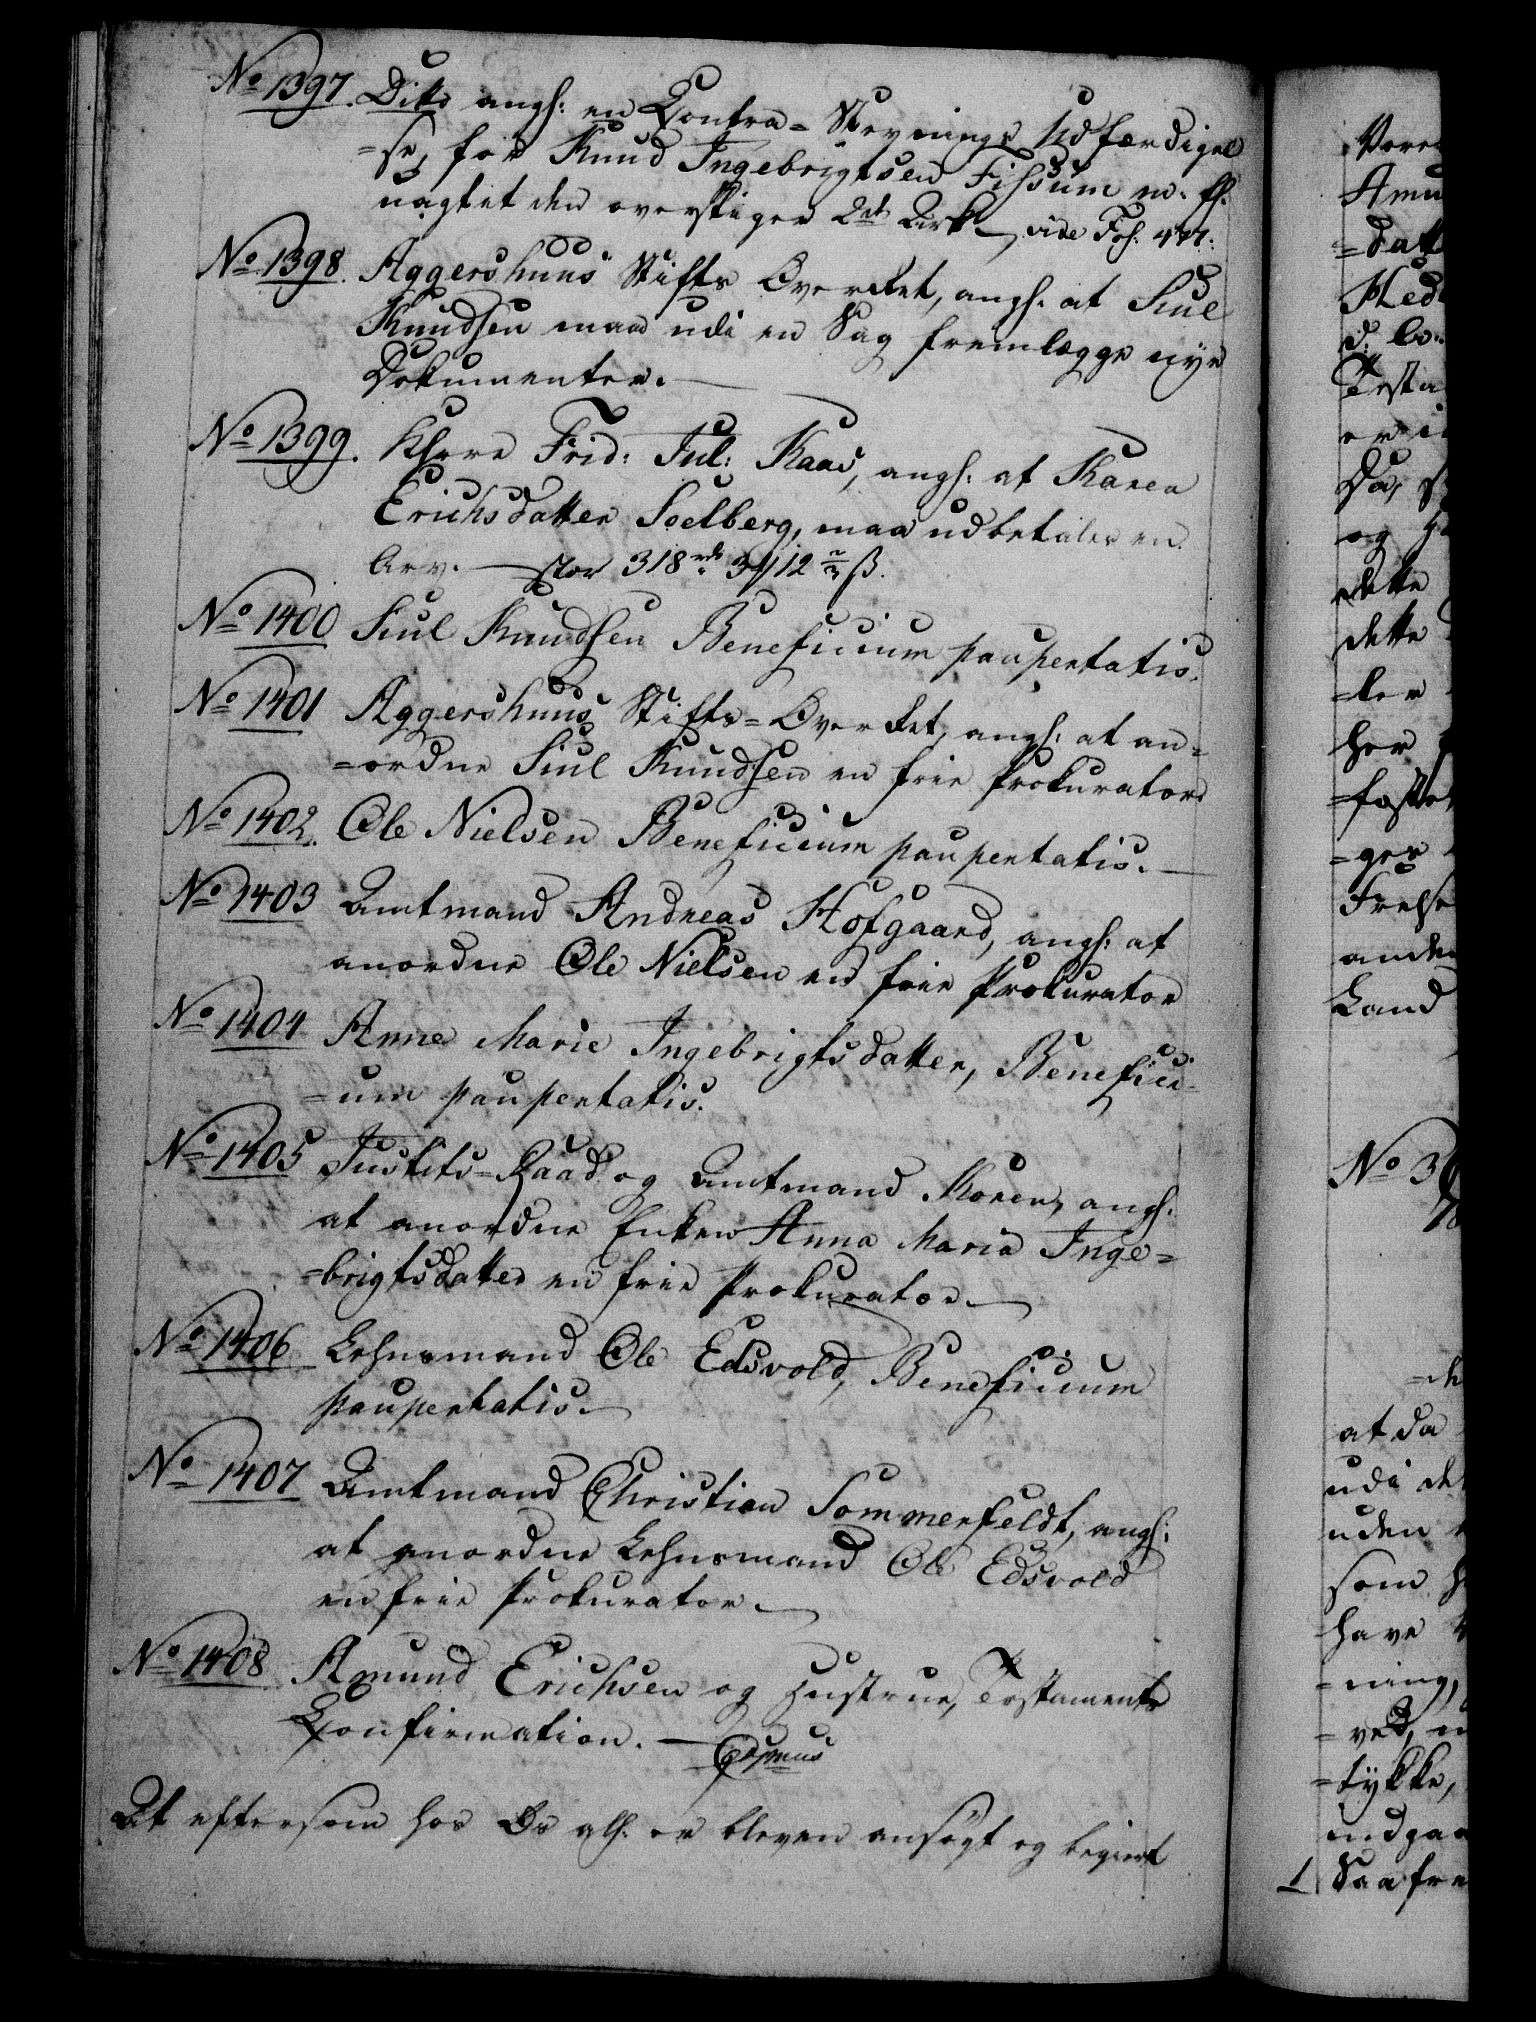 No 1397. Ditto angh: en Contra-Stevnings Udfærdigel
=se, for Knud Ingebrigtsen Fissum m: fl:
uagtet den overstiger 2de Ark vide Fol: 477.
No 1398. Aggershuus Stifts Overret, angh: at Siul
Knudsen maa udi en Sag fremlægge nye
Dokumenter.
No 1399. Khere Frid: Jul: Kaas, angh: at Karen
Erichsdatter Soelberg, maa udbetales en
Arv. stor 318 rd 3 # 12 2/3 ß.
No 1400 Siul Knudsen Beneficium paupertatis.
No 1401 Aggershuus Stifts=Overret, angh: at an=
=ordne Siul Knudsen en frie Prokurator
No 1402. Ole Nielsen Beneficium paupertatis.
No 1403 Amtmand Andreas Hofgaard, angh: at
anordne Ole Nielsen en frie Prokurator
No 1404 Anne Marie Ingebrigtsdatter, Benefici=
=um paupertatis.
No 1405 Justits=Raad og Amtmand Koren, angh:
at anordne Enken Anna Maria Inge=
=brigtsdatter en frie Prokurator.
No 1406 Lehnsmand Ole Edsvold, Beneficium
paupertatis.
No 1407 Amtmand Christian Sommerfeldt, angh:
at anordne Lehnsmand Ole Edsvold
en frie Prokurator.
No 1408 Amund Erichsen og Hustrue, Testaments
Confirmation.
At eftersom hos Os allh: er bleven ansøgt og begiert
Amu
=datt
Hed
Testa
og
dette
dette
=ler
her
=faste
=ger
Frelse
anden
Land
No 3
at da
udi de
uden
som
have
=ning,
=ved,
=tykke,
indgaa
1 Saa fre